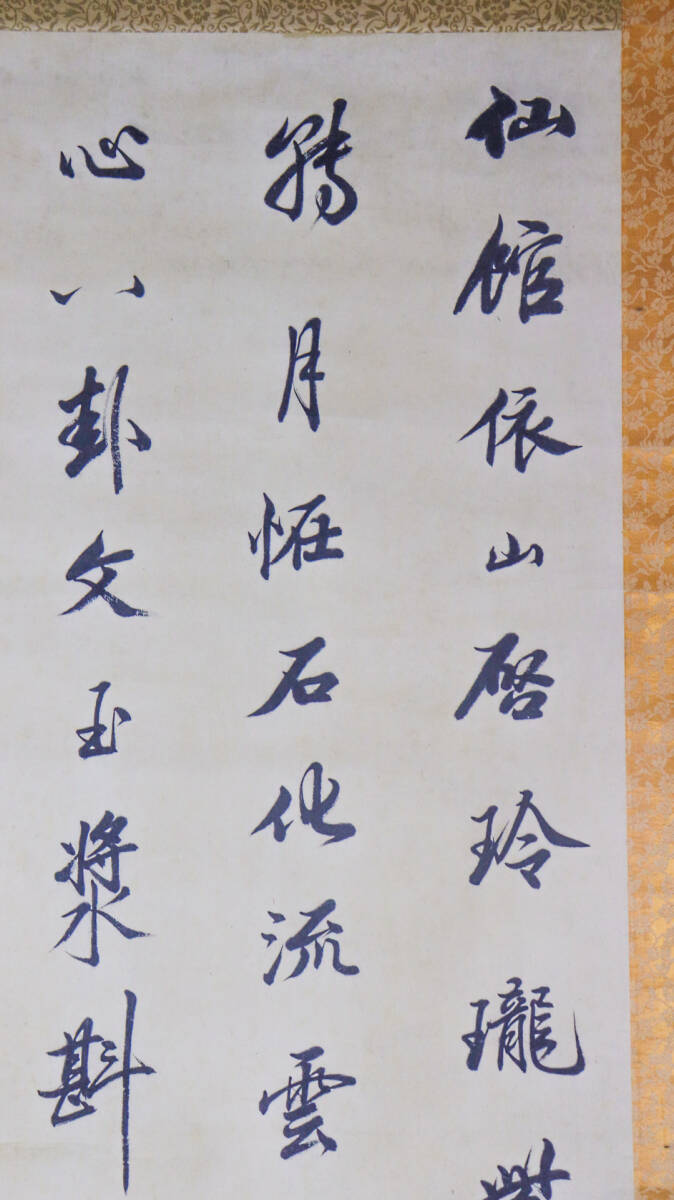 仙館依山啓玲瓏
月恠石化流雲
心八卦文玉漿斟